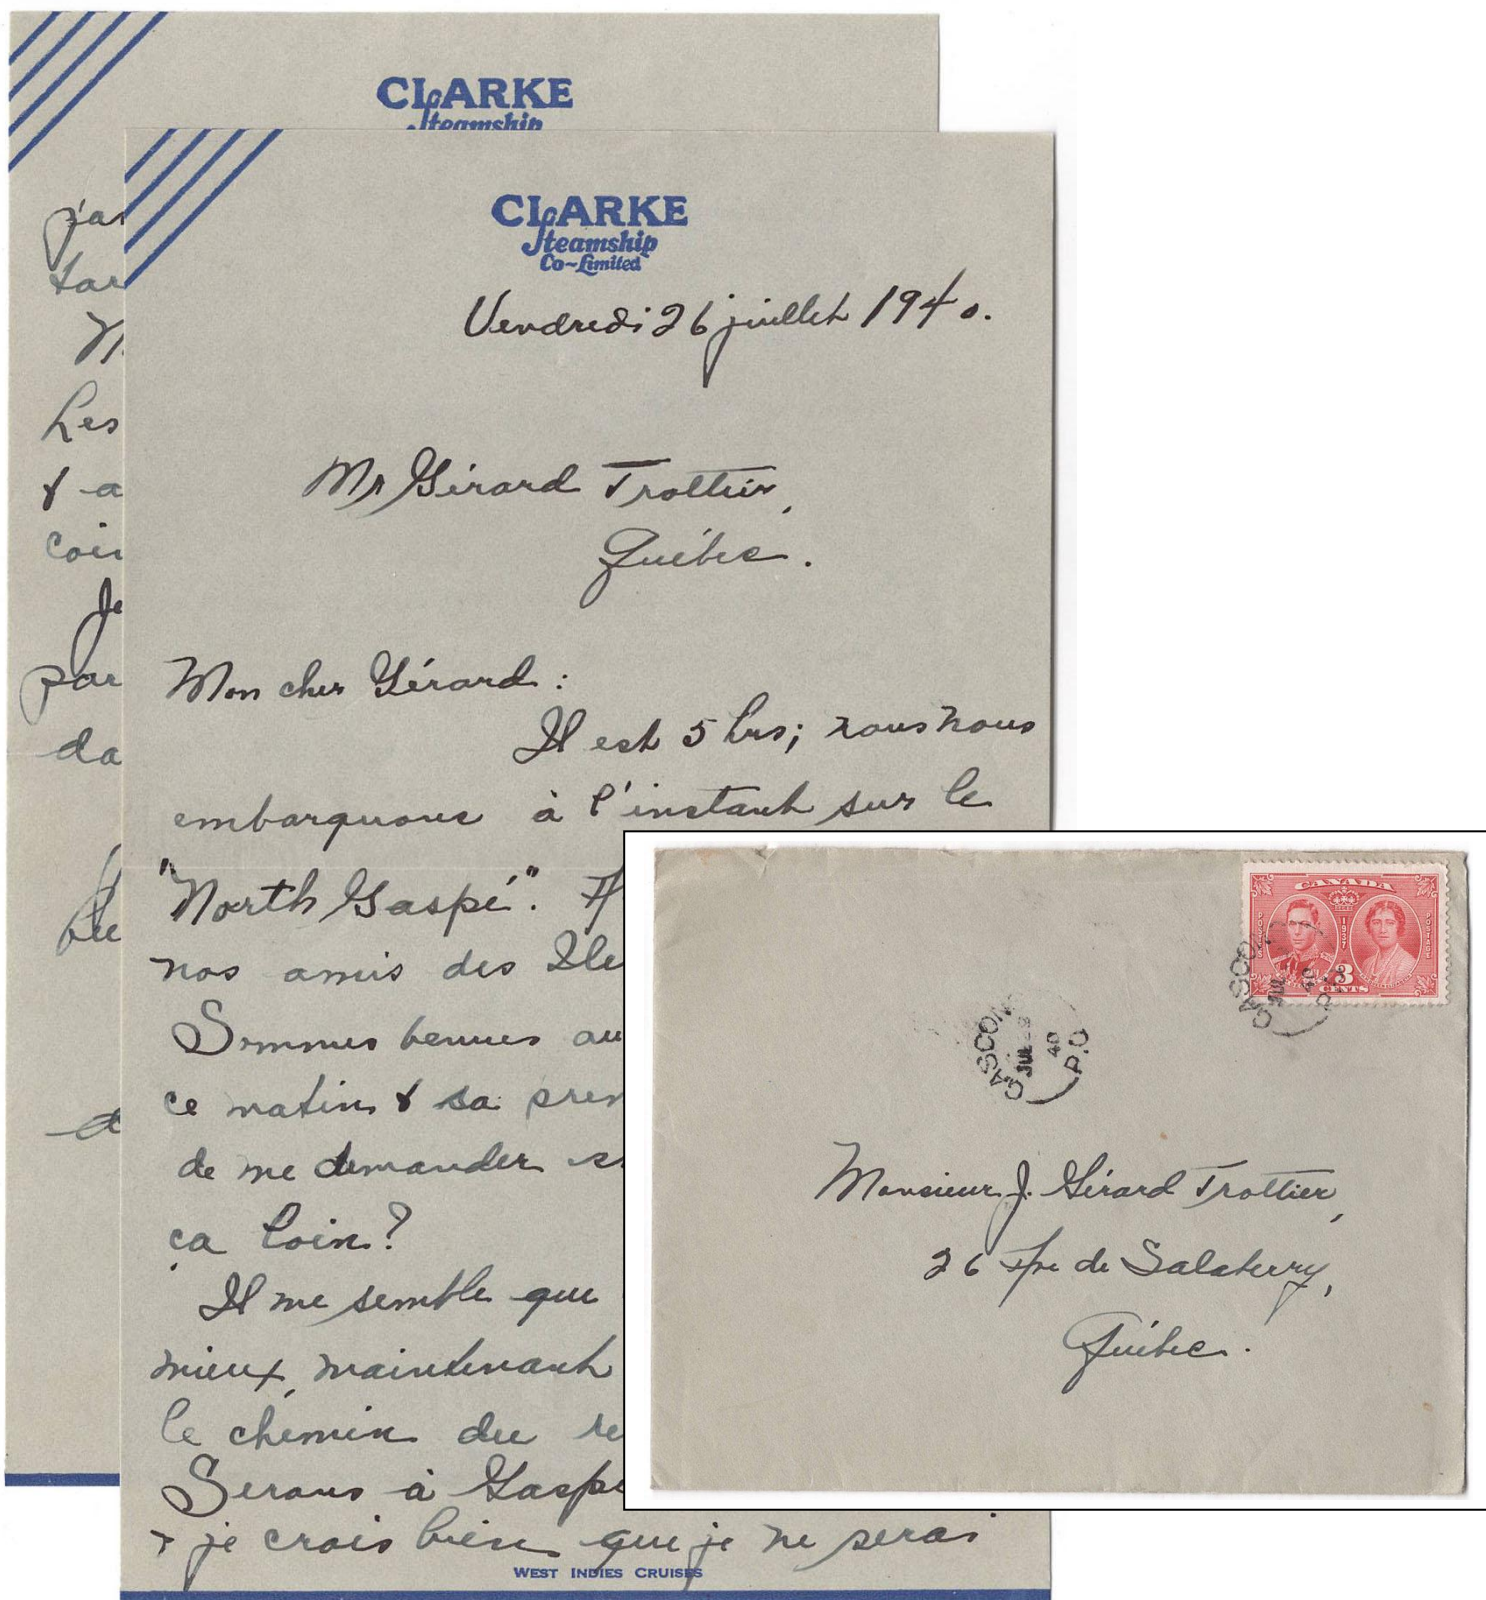 CLARKE
Steamship
j'a
tar
Les
& a
coin
Je
par
da
CLARKE
Steamship
Co-Limited
Vendredi 26 juillet 1940.
Mr Gérard Trottier,
Québec.
Mon cher Gérard :
Il est 5 hrs; nous nous
embarquons à l'instant sur le
"North Gaspé".
nos amis des Ile
Sommes venues au
ce matin & sa prem
de me demander si
ça loin?
Il me semble que
mieux, maintenant
le chemin du re
Serons à Gaspé
& je crois bien que je ne serai
WEST INDIES CRUISES
CANADA
POSTES
1937
POSTAGE
3
CENTS
GASCON
JUL
40
P.Q
GASCON
JUL 29
40
P.Q
Monsieur J. Gérard Trottier,
26 Ave de Salaberry,
Québec.